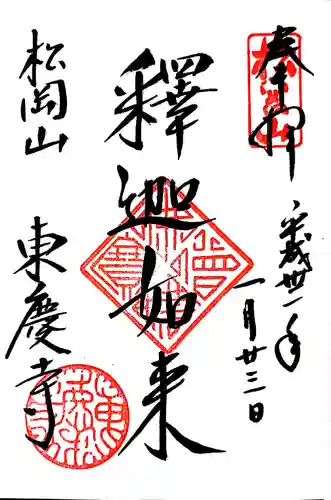 奉拝
平成卅一年
一月廿三日
釋迦如来
松岡山
東慶寺